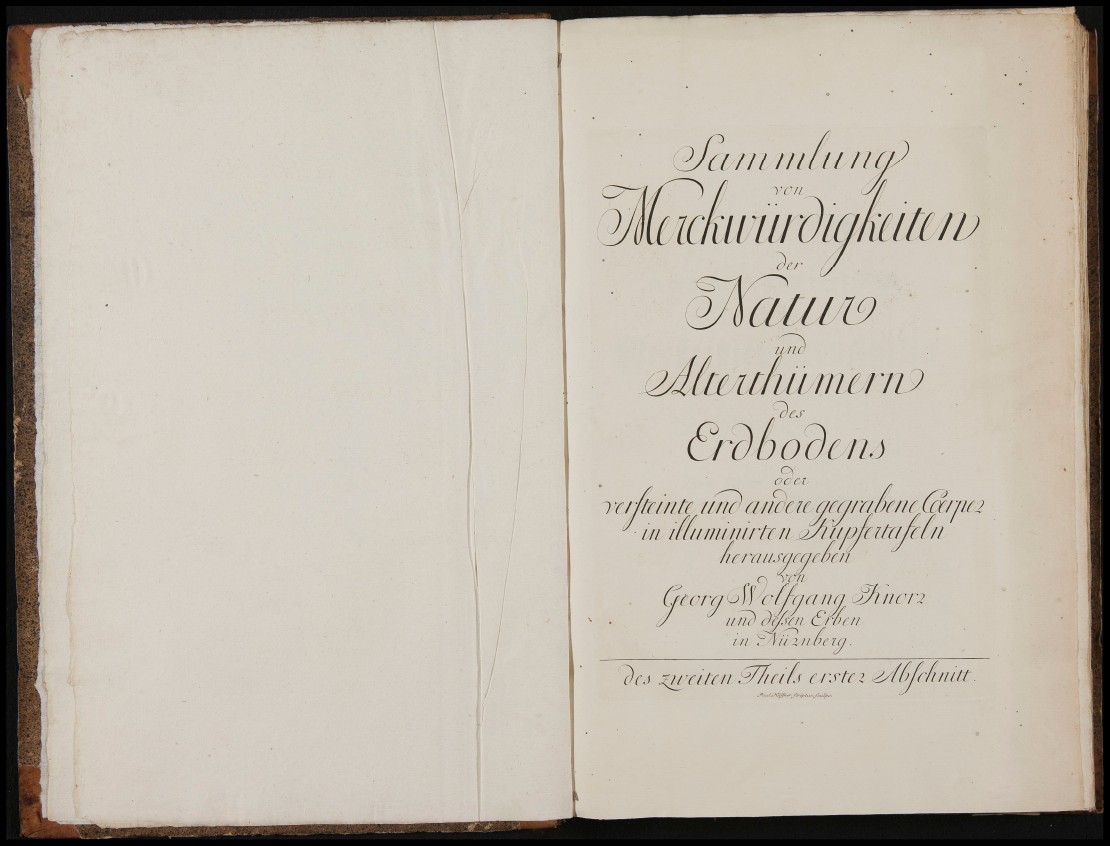 Sammlung
von
Merckwürdigkeiten
der
Natur
und
Alterthümern
des
Erdbodens
oder
versteinte und andere gegrabene Cœrper
in illuminirten Kupfertafeln
herausgegeben
von
Georg Wolfgang Knorr
und dessen Erben
in Nürnberg.
des zweiten Theils erster Abschnitt.